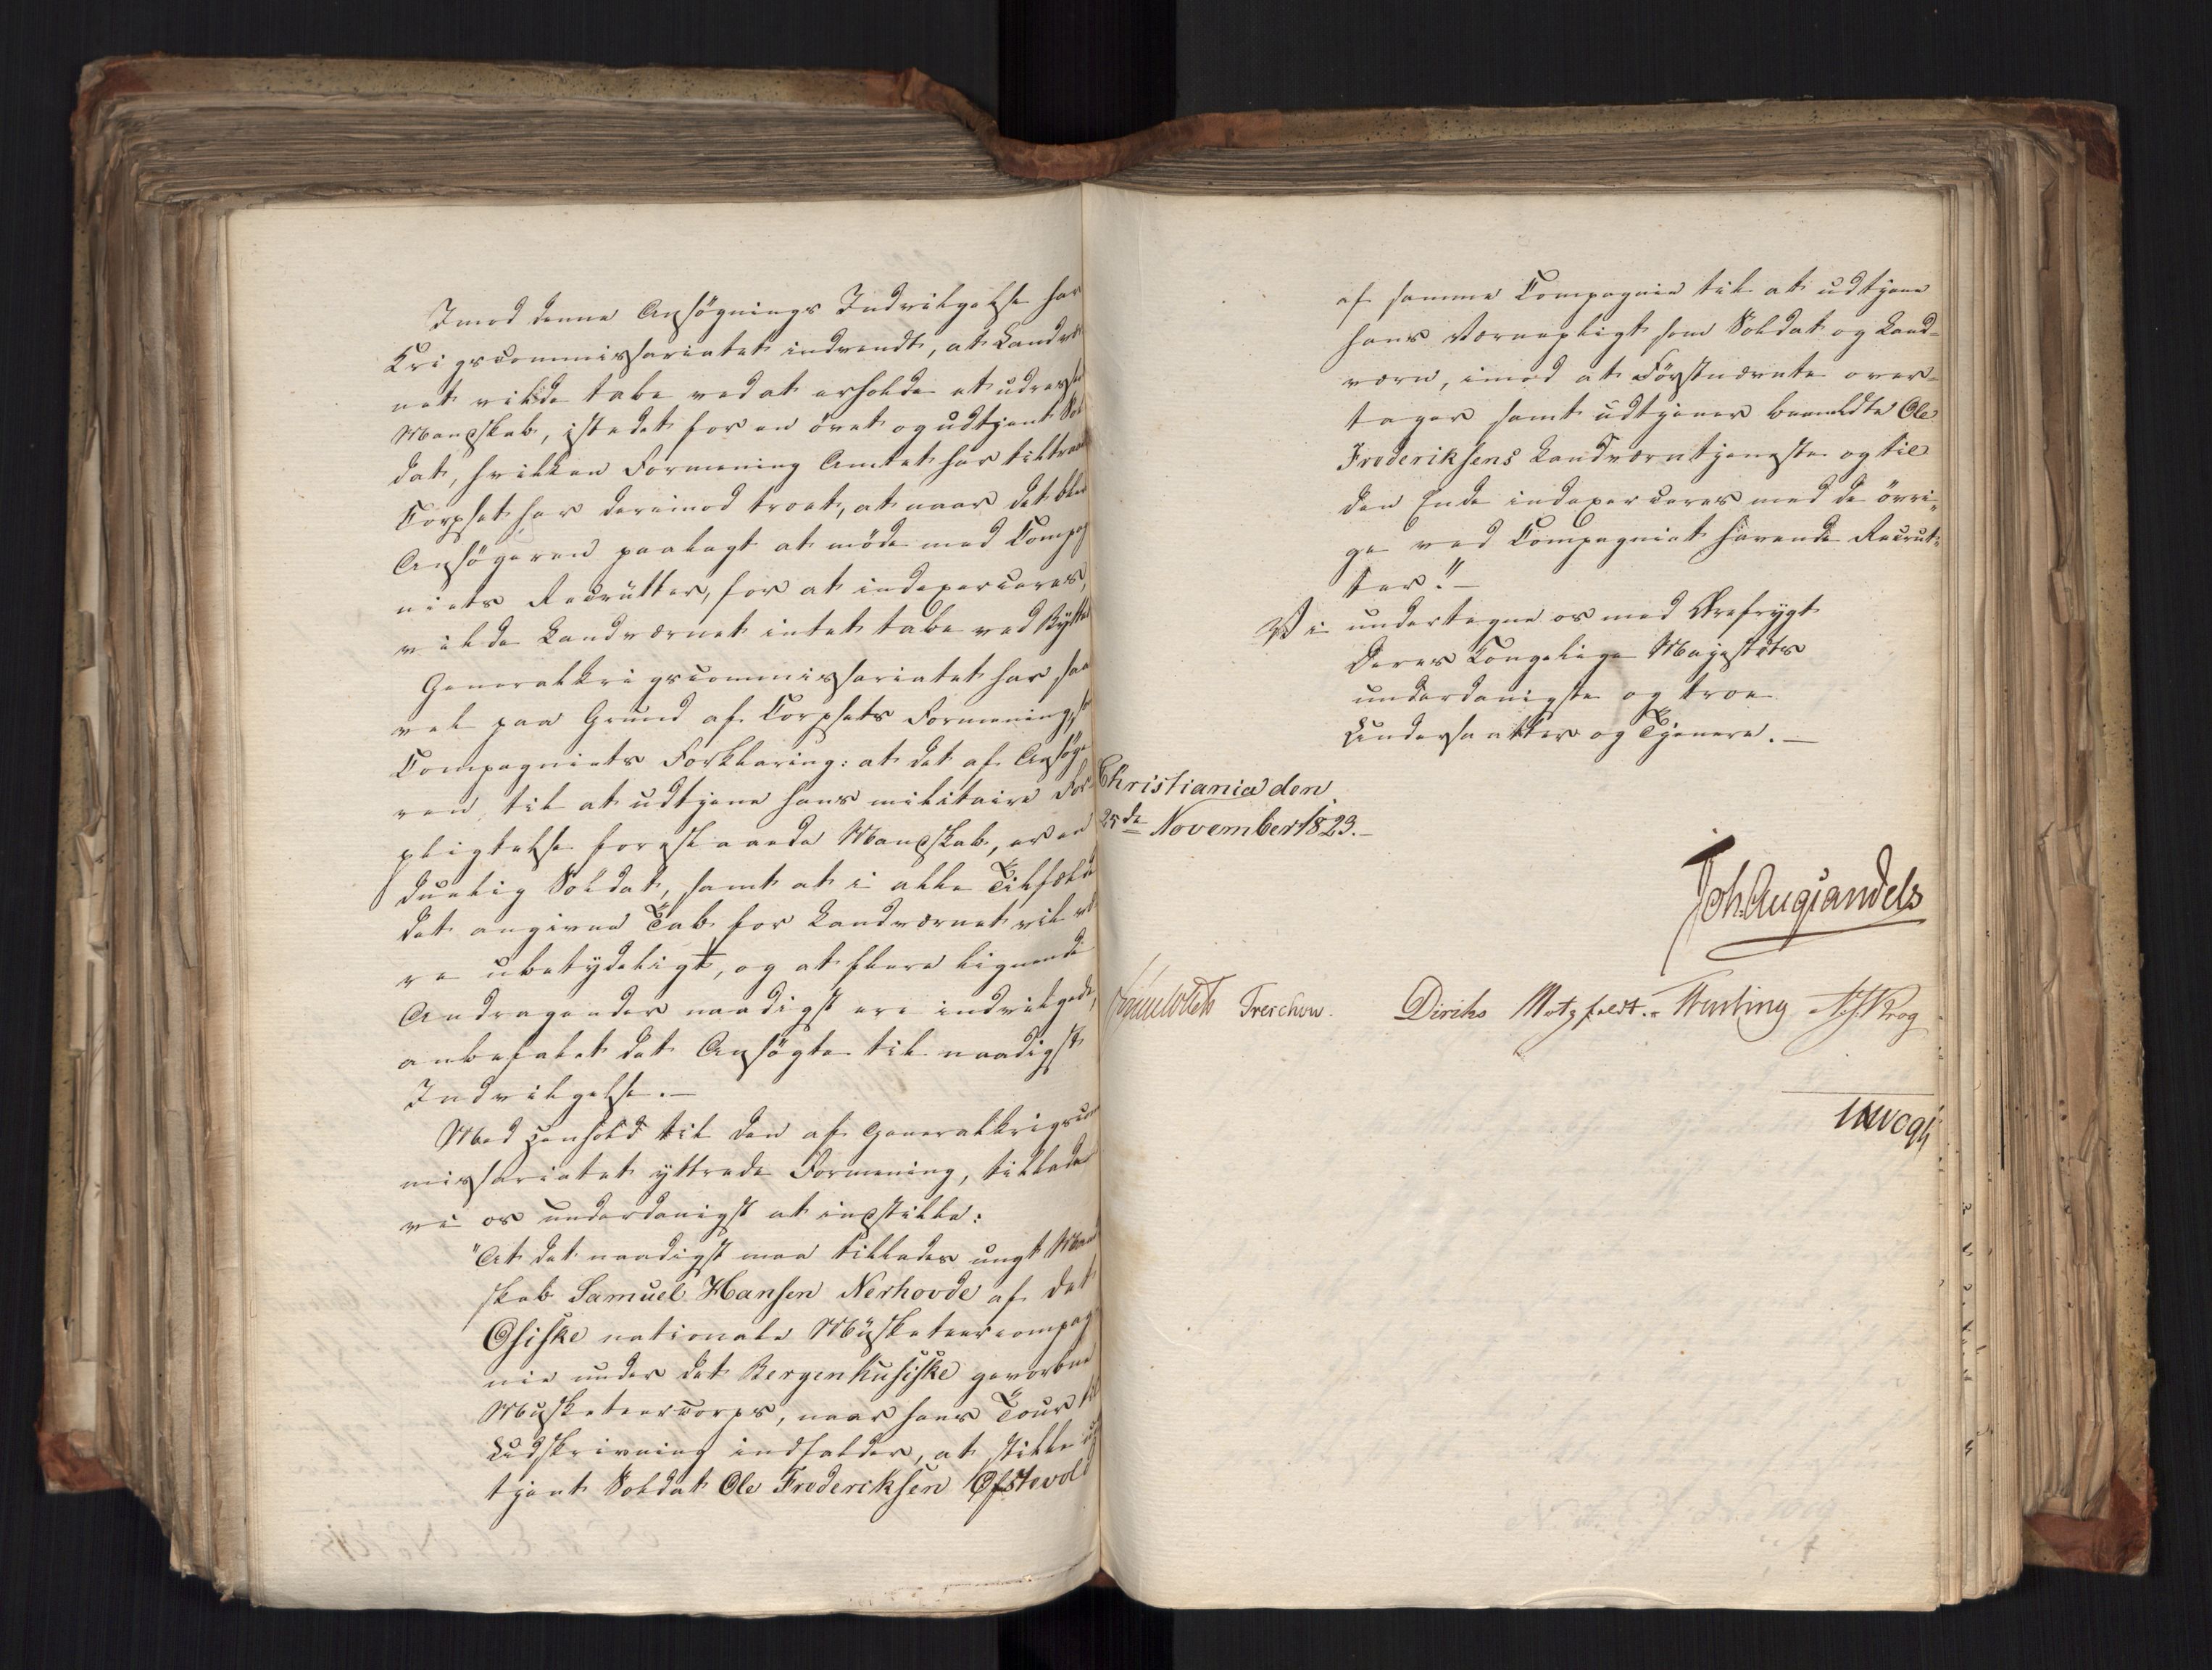 Imod denne Ansøgnings Indvilgelse har
Krigscommissariatet indvendt, at Landvær
net vilde tabe ved at erholde et udresseret
Mandskab, istedet for en øvet og udtjent Sol
dat, hvilken Formening Amtet har tiltraadt
Corpset har derimod troet, at naar det blev
Ansøgeren paalagt at møde med Compag
niets Recrutter, for at indexerceres,
vilde Landværnet intet tabe ved Byttet
Generalkrigscommissariatet har saa
vel paa Grund af Corpsets Formening, som
Compagniets Forklaring: at det af Ansøge
ren, til at udtjene hans militaire For
pligtelse foreslaaede Mandskab, er en
duelig Soldat, samt at i alle Tilfælde
det angivne Tab for Landværnet vil væ
re ubetydeligt, og at flere lignende
Andragender naadigst ere indvilgede,
anbefalet det Ansøgte til naadigst
Indvilgelse.—
Med Henhold til den af Generalkrigscom
missariatet yttrede Formening, tillade
vi os underdanigst at indstille:
"At det naadigst maa tillades ungt Mand
skab Samuel Hansen Nerhovde af det
Osiske nationale Musketeercompag
nie under det Bergenhusiske gevorbne
Musketeercorps, naar hans Tour til
Udskrivning indfalder, at stille ud
tjent Soldat Ole Frederiksen Ofstevold
af samme Compagnie til at udtjene
hans Værnepligt som Soldat og Land-
værn, imod at Førstnævnte over-
tager samt udtjener bemeldte Ole
Frederiksens Landværntjeneste og til
den Ende indexerceres med de øvri-
ge ved Compagniet havende Recrut-
ter."—
Vi undertegne os med Ærefrygt
Deres Kongelige Majestæts
underdanigste og troe
Undersaatter og Tjenere.—
Christiania den
25de November 1823.—
Joh. Aug. Sandels
Sommerfeldt Treschow. Diriks Motzfeldt. Fasting N. J. Krog
Vogt